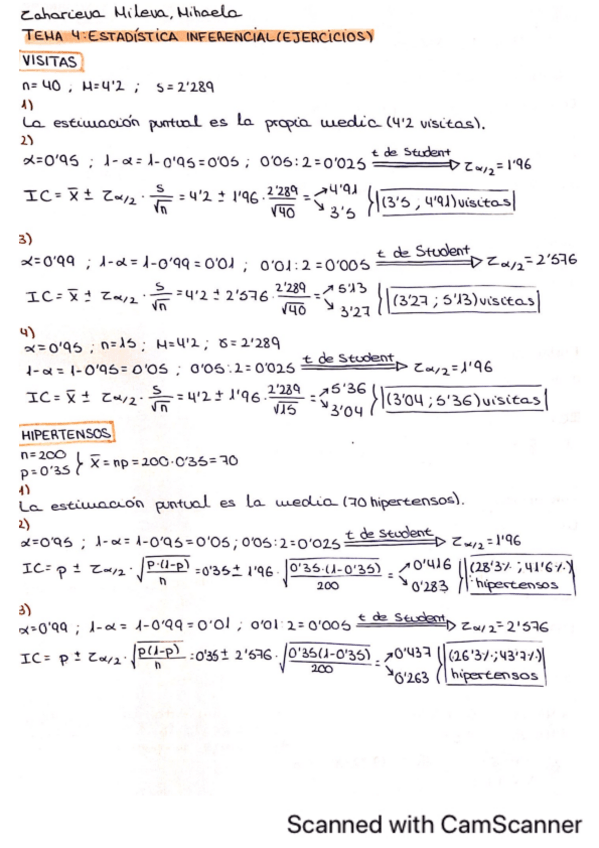 Zaharieva Mileva, Mihaela
TEMA 4: ESTADÍSTICA INFERENCIAL (EJERCICIOS)
VISITAS
n = 40 ; M = 4'2 ; s = 2'289
1)
La estimación puntual es la propia media (4'2 visitas).
2)
α = 0'95 ; 1-α = 1-0'95 = 0'05 ; 0'05 : 2 = 0'025 t de Student ⟹ Zα/2 = 1'96
IC = x̄ ± Zα/2 · s/√n = 4'2 ± 1'96 · 2'289/√40 = ↗ 4'91 ↘ 3'5 } (3'5 , 4'91) visitas
3)
α = 0'99 ; 1-α = 1-0'99 = 0'01 ; 0'01 : 2 = 0'005 t de Student ⟹ Zα/2 = 2'576
IC = x̄ ± Zα/2 · s/√n = 4'2 ± 2'576 · 2'289/√40 = ↗ 5'13 ↘ 3'27 } (3'27 ; 5'13) visitas
4)
α = 0'95 ; n = 15 ; M = 4'2 ; s = 2'289
1-α = 1-0'95 = 0'05 ; 0'05 : 2 = 0'025 t de Student ⟹ Zα/2 = 1'96
IC = x̄ ± Zα/2 · s/√n = 4'2 ± 1'96 · 2'289/√15 = ↗ 5'36 ↘ 3'04 } (3'04 ; 5'36) visitas
HIPERTENSOS
n = 200
p = 0'35 } x̄ = np = 200 · 0'35 = 70
1)
La estimación puntual es la media (70 hipertensos).
2)
α = 0'95 ; 1-α = 1-0'95 = 0'05 ; 0'05 : 2 = 0'025 t de Student ⟹ Zα/2 = 1'96
IC = p ± Zα/2 · √(p·(1-p)/n) = 0'35 ± 1'96 · √(0'35·(1-0'35)/200) = ↗ 0'416 ↘ 0'283 } (28'3% ; 41'6%) hipertensos
3)
α = 0'99 ; 1-α = 1-0'99 = 0'01 ; 0'01 : 2 = 0'005 t de Student ⟹ Zα/2 = 2'576
IC = p ± Zα/2 · √(p(1-p)/n) = 0'35 ± 2'576 · √(0'35(1-0'35)/200) = ↗ 0'437 ↘ 0'263 } (26'3% ; 43'7%) hipertensos
Scanned with CamScanner